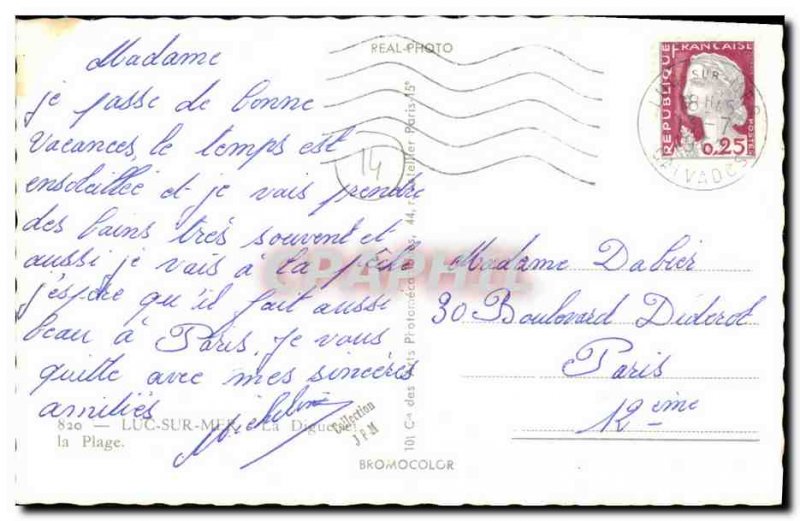 REAL-PHOTO
Madame
je passe de bonne
vacances, le temps est
ensoleillée et je vais prendre
des bains très souvent et
aussi je vais à la pêche
j'espère qu'il fait aussi
beau à Paris, je vous
quitte avec mes sincères
amitiés
Micheline
14
820 — LUC-SUR-MER - La Digue et
la Plage.
Collection
J P M
BROMOCOLOR
101 Cie des Arts Photomécaniques, 44, r. Letellier Paris-15e
REPUBLIQUE FRANCAISE
0,25
POSTES
SUR-MER
18H45
-7
CALVADOS
Madame Dabier
30 Boulevard Diderot
Paris
12ème
CPAPHIL